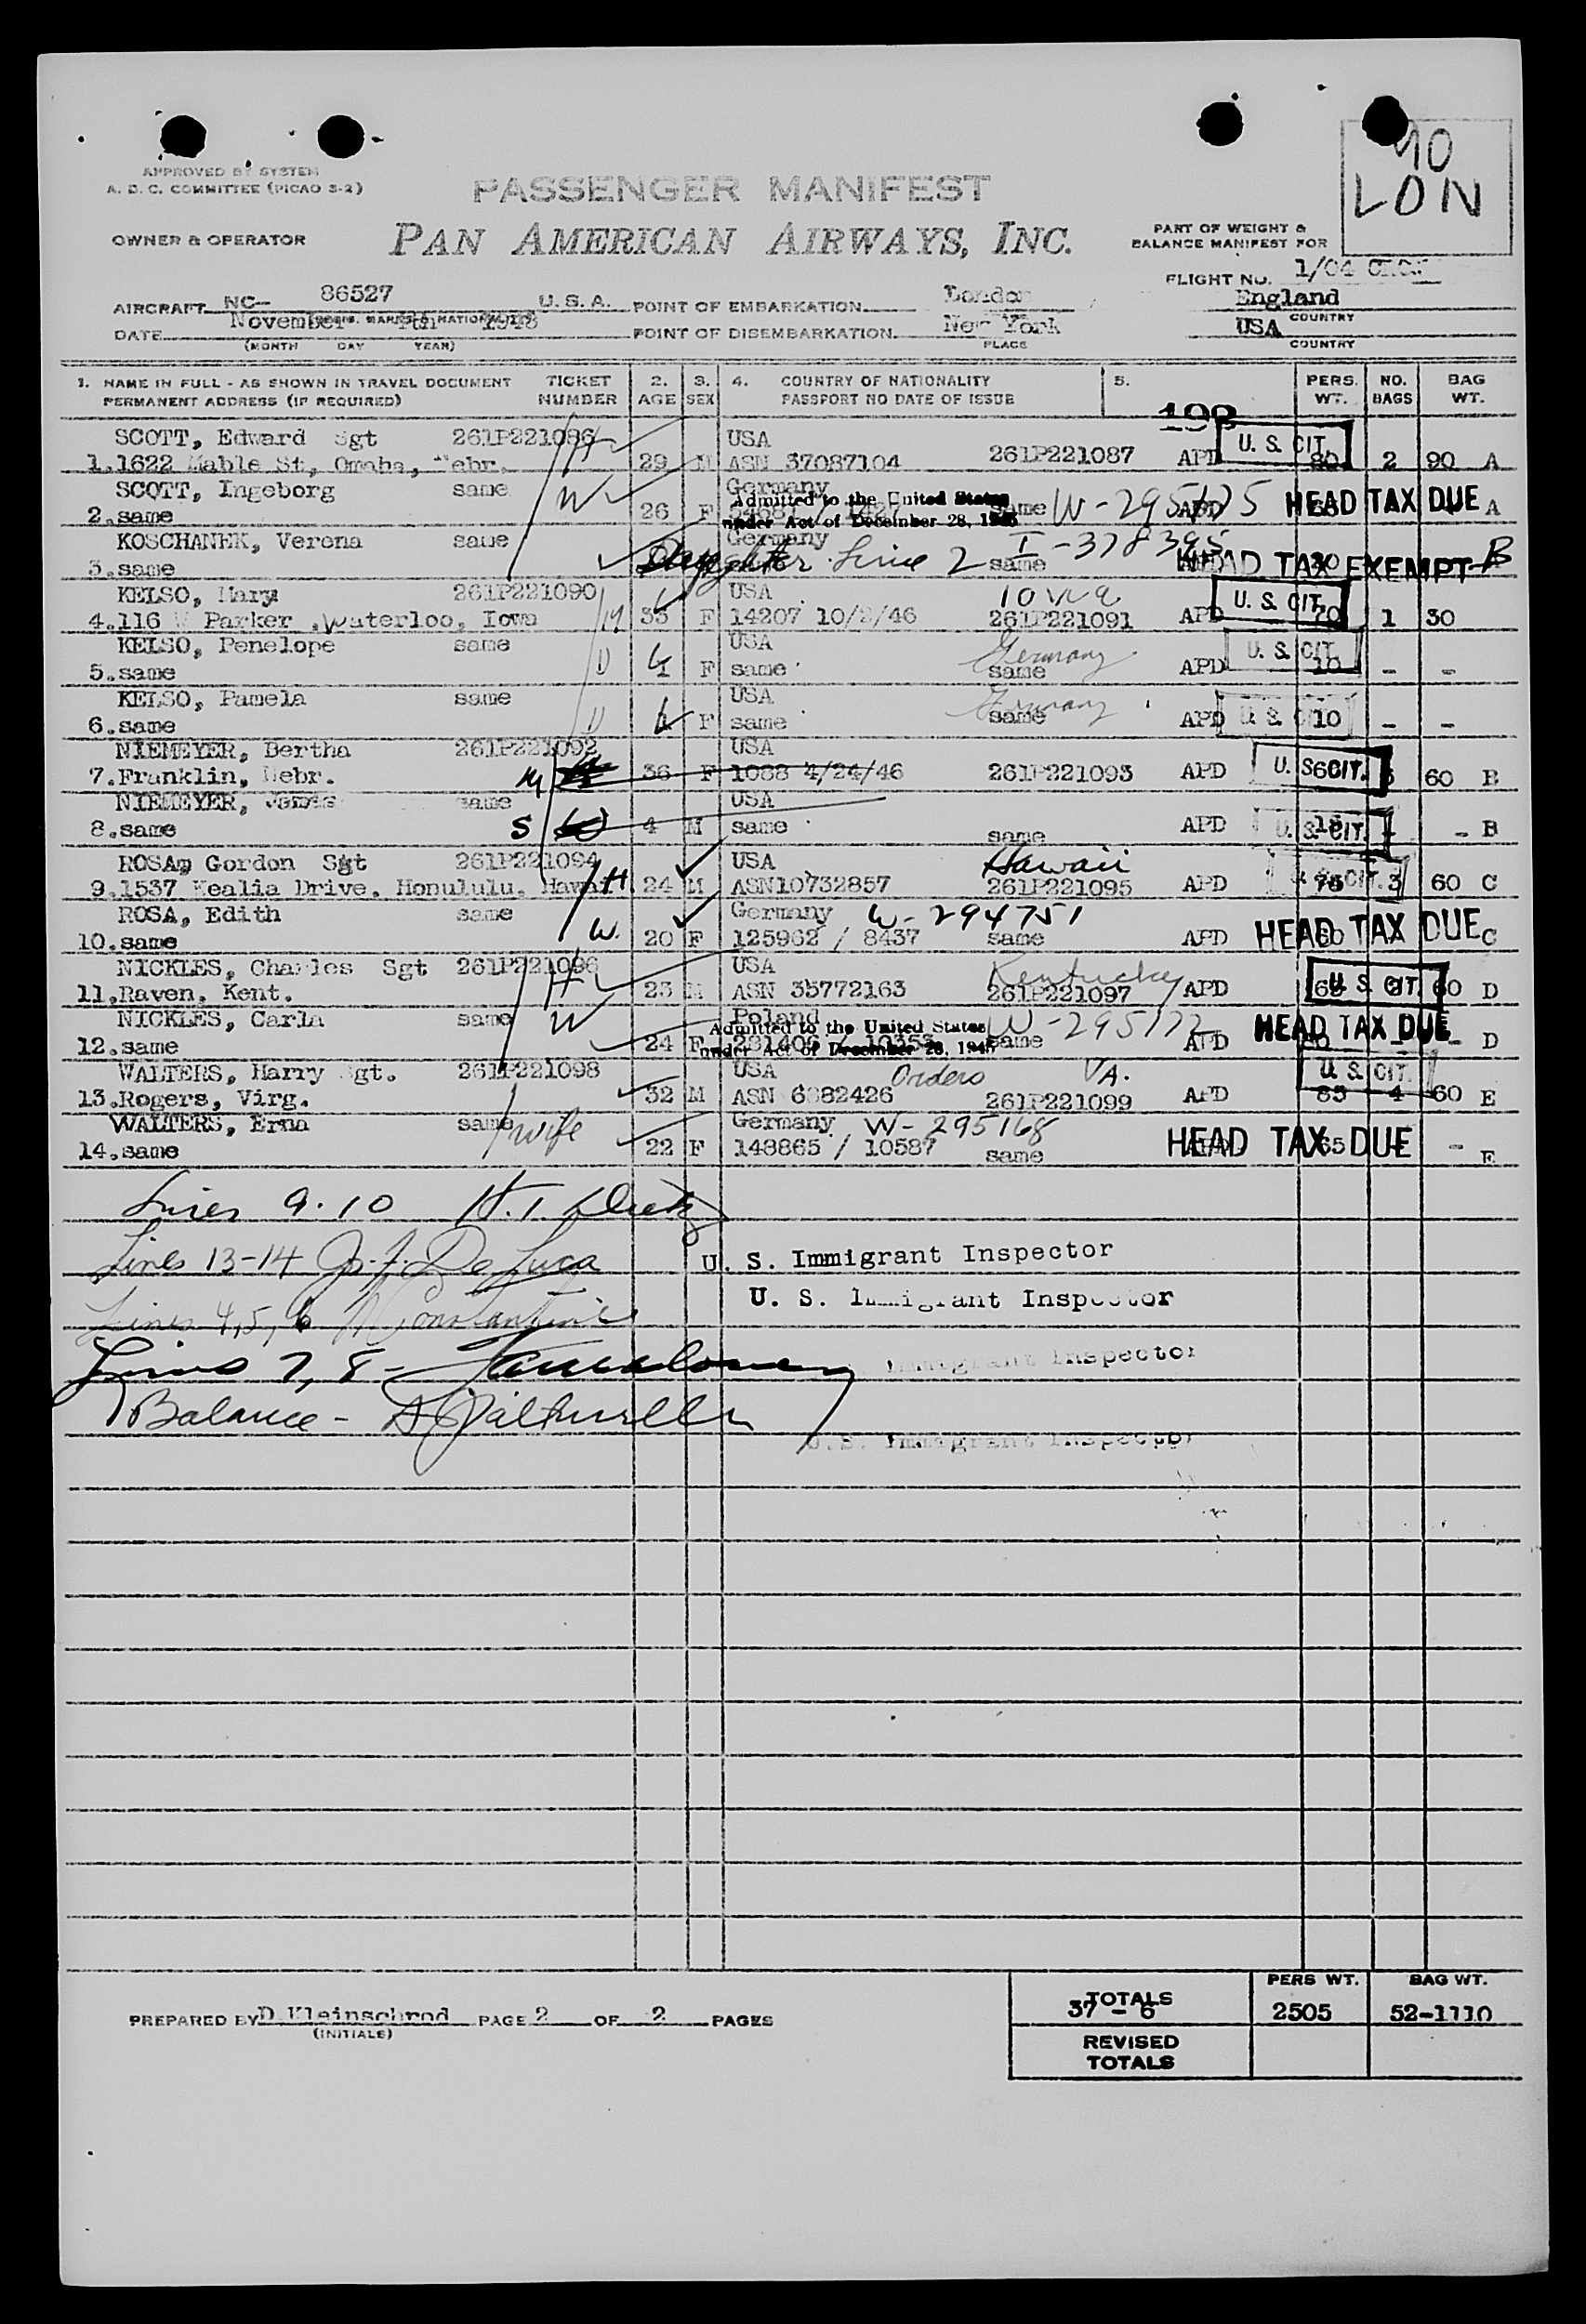 10
LON
APPROVED BY SYSTEM
A. D. C. COMMITTEE (PICAO S-2)
PASSENGER MANIFEST
OWNER & OPERATOR
PAN AMERICAN AIRWAYS, INC.
PART OF WEIGHT &
BALANCE MANIFEST FOR
FLIGHT NO. 1/04
AIRCRAFT NC- 86527 U.S.A. POINT OF EMBARKATION London England
COUNTRY
DATE November POINT OF DISEMBARKATION New York USA
(MONTH DAY YEAR) PLACE COUNTRY
1. NAME IN FULL - AS SHOWN IN TRAVEL DOCUMENT TICKET 2. 3. 4. COUNTRY OF NATIONALITY 5. PERS. NO. BAG
PERMANENT ADDRESS (IF REQUIRED) NUMBER AGE SEX PASSPORT NO DATE OF ISSUE WT. BAGS WT.
SCOTT, Edward Sgt 261P221086 H USA U. S. CIT.
1.1622 Mable St, Omaha, Nebr. 29 M ASN 37087104 261P221087 APD 80 2 90 A
SCOTT, Ingeborg same W Germany Admitted to the United States W-295175 HEAD TAX DUE
2.same 26 F under Act of December 28, 1945 same APD A
KOSCHANEK, Verona same Germany I-378395
3.same Daughter Line 2 same HEAD TAX EXEMPT B
KELSO, Mary 261P221090 USA Iowa U. S. CIT.
4.116 W Parker ,Waterloo, Iowa M 33 F 14207 261P221091 APD 70 1 30
KELSO, Penelope same USA Germany U. S. CIT.
5.same D 4 F same same APD 10 - -
KELSO, Pamela same USA Germany U. S. CIT.
6.same D 4 F same same APD 10 - -
NIEMEYER, Bertha 261P221092 USA
7.Franklin, Nebr. M 36 F 1088 4/24/46 261P221093 APD U. S. CIT. 60 B
NIEMEYER, James same USA
8.same S 4 M same same APD U. S. CIT. - B
ROSA, Gordon Sgt 261P221094 USA Hawaii
9.1537 Kealia Drive, Honolulu, Hawaii H 24 M ASN10732857 261P221095 APD 75 3 60 C
ROSA, Edith same Germany W-294751
10.same W. 20 F 125962 / 8437 same APD HEAD TAX DUE C
NICKLES, Charles Sgt 261P221096 USA Kentucky
11.Raven, Kent. H 23 M ASN 35772163 261P221097 APD U. S. CIT. 60 D
NICKLES, Carla same W Poland Admitted to the United States W-295172 HEAD TAX DUE
12.same 24 F under Act of December 28, 1945 same APD - D
WALTERS, Harry Sgt. 261P221098 USA Orders VA. U. S. CIT.
13.Rogers, Virg. 32 M ASN 6882426 261P221099 APD 85 4 60 E
WALTERS, Erna same wife Germany W-295168
14.same 22 F 148865 / 10587 same HEAD TAX DUE 65 - E
Lines 9.10
Lines 13-14 De Luca U. S. Immigrant Inspector
Lines 4,5,6 Constantine U. S. Immigrant Inspector
Lines 7, 8 - Immigrant Inspector
Balance -
U.S. Immigrant Inspector
PERS WT. BAG WT.
PREPARED BY D.Kleinschrod PAGE 2 OF 2 PAGES TOTALS 37 - 6 2505 52-1110
(INITIALS)
REVISED
TOTALS